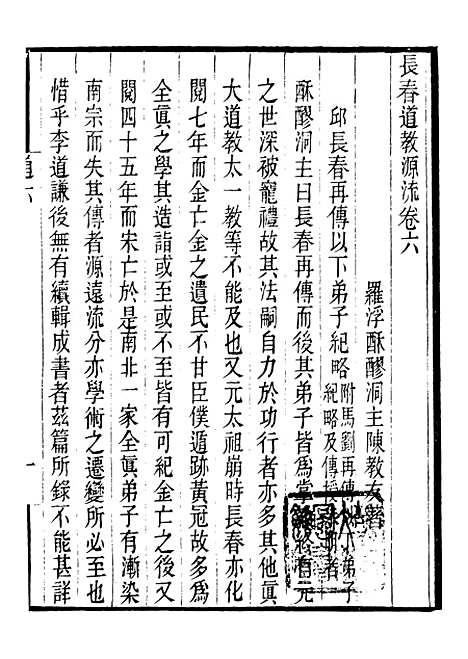 長春道教源流卷六
羅浮酥醪洞主陳教友著
邱長春再傳以下弟子紀略附馬劉再傳以下弟子
紀略及傳授者
酥醪洞主曰長春再傳而後其弟子皆為掌教有元
之世深被寵禮故其法嗣自力於功行者亦多其他眞
大道教太一教等不能及也又元太祖崩時長春亦化
閱七年而金亡金之遺民不甘臣僕遁跡黃冠故多爲
全眞之學其造詣或至或不至皆有可紀金亡之後又
閱四十五年而宋亡於是南北一家全眞弟子有漸染
南宗而失其傳者源遠流分亦學術之遷變所必至也
惜乎李道謙後無有續輯成書者茲篇所錄不能甚詳
道六
一